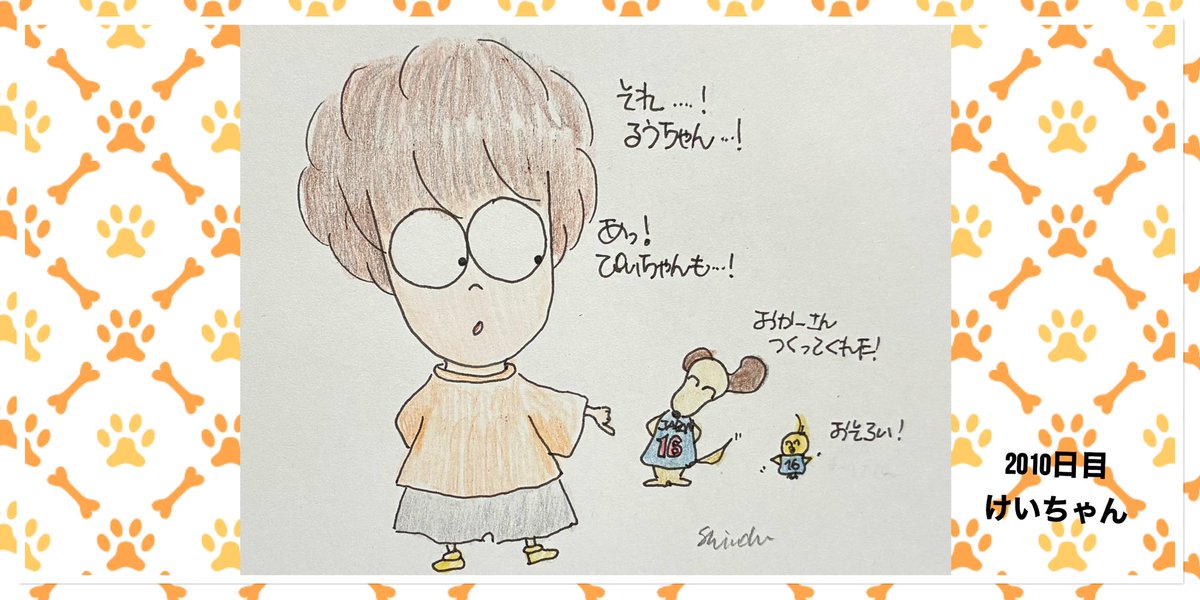 それ….!
るうちゃん…!
あっ!
ぴいちゃんも…!
おかーさん
つくってくれた!
おそろい!
16
16
2010日目
けいちゃん